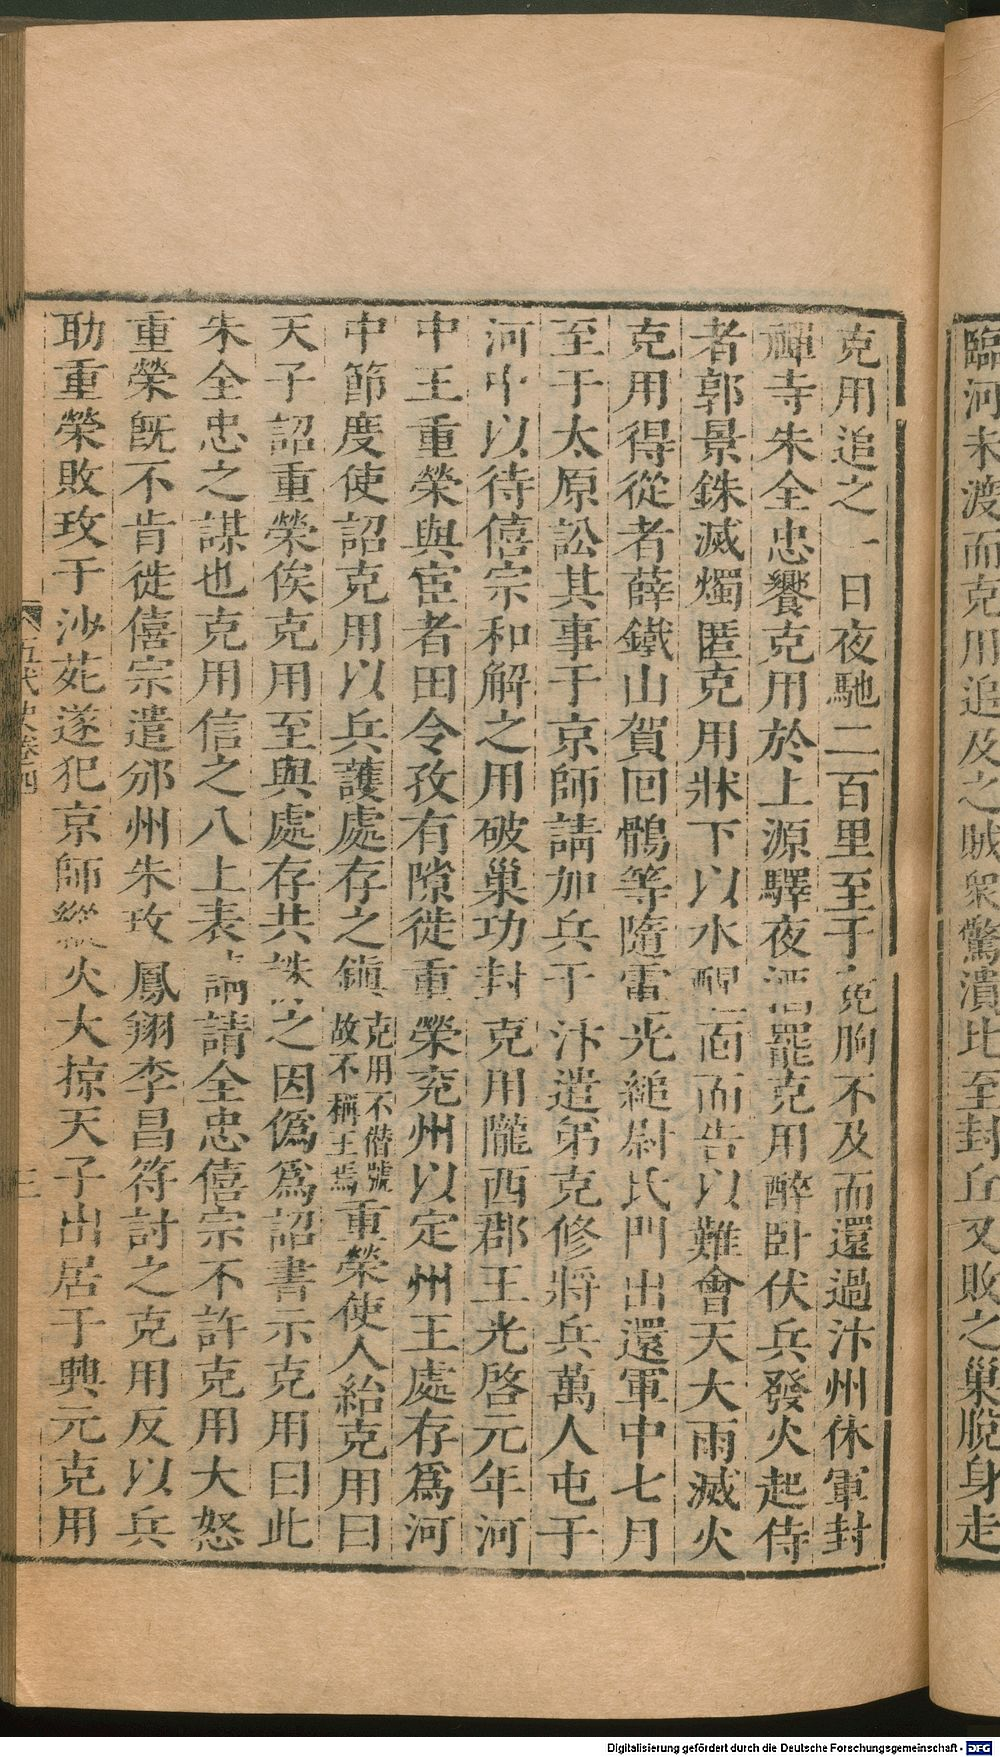 臨河未渡而克用追及之賊衆驚潰比至封丘又敗之巢脫身走
克用追之一日夜馳二百里至于寃朐不及而還過汴州休軍封
禪寺朱全忠饗克用於上源驛夜酒罷克用醉卧伏兵發火起侍
者郭景銖滅燭匿克用牀下以水醒面而告以難會天大雨滅火
克用得從者薛鐵山賀回鶻等隨電光縋尉氏門出還軍中七月
至于太原訟其事于京師請加兵于汴遣弟克修將兵萬人屯于
河中以待僖宗和解之用破巢功封克用隴西郡王光啓元年河
中王重榮與宦者田令孜有隙徙重榮兖州以定州王處存爲河
中節度使詔克用以兵護處存之鎮克用不僭號故不稱王焉重榮使人紿克用曰
天子詔重榮俟克用至與處存共誅之因僞爲詔書示克用曰此
朱全忠之謀也克用信之八上表請請全忠僖宗不許克用大怒
重榮旣不肯徙僖宗遣邠州朱玫鳳翔李昌符討之克用反以兵
助重榮敗玫于沙苑遂犯京師縱火大掠天子出居于興元克用
五代史卷四
三
Digitalisierung gefördert durch die Deutsche Forschungsgemeinschaft - DFG